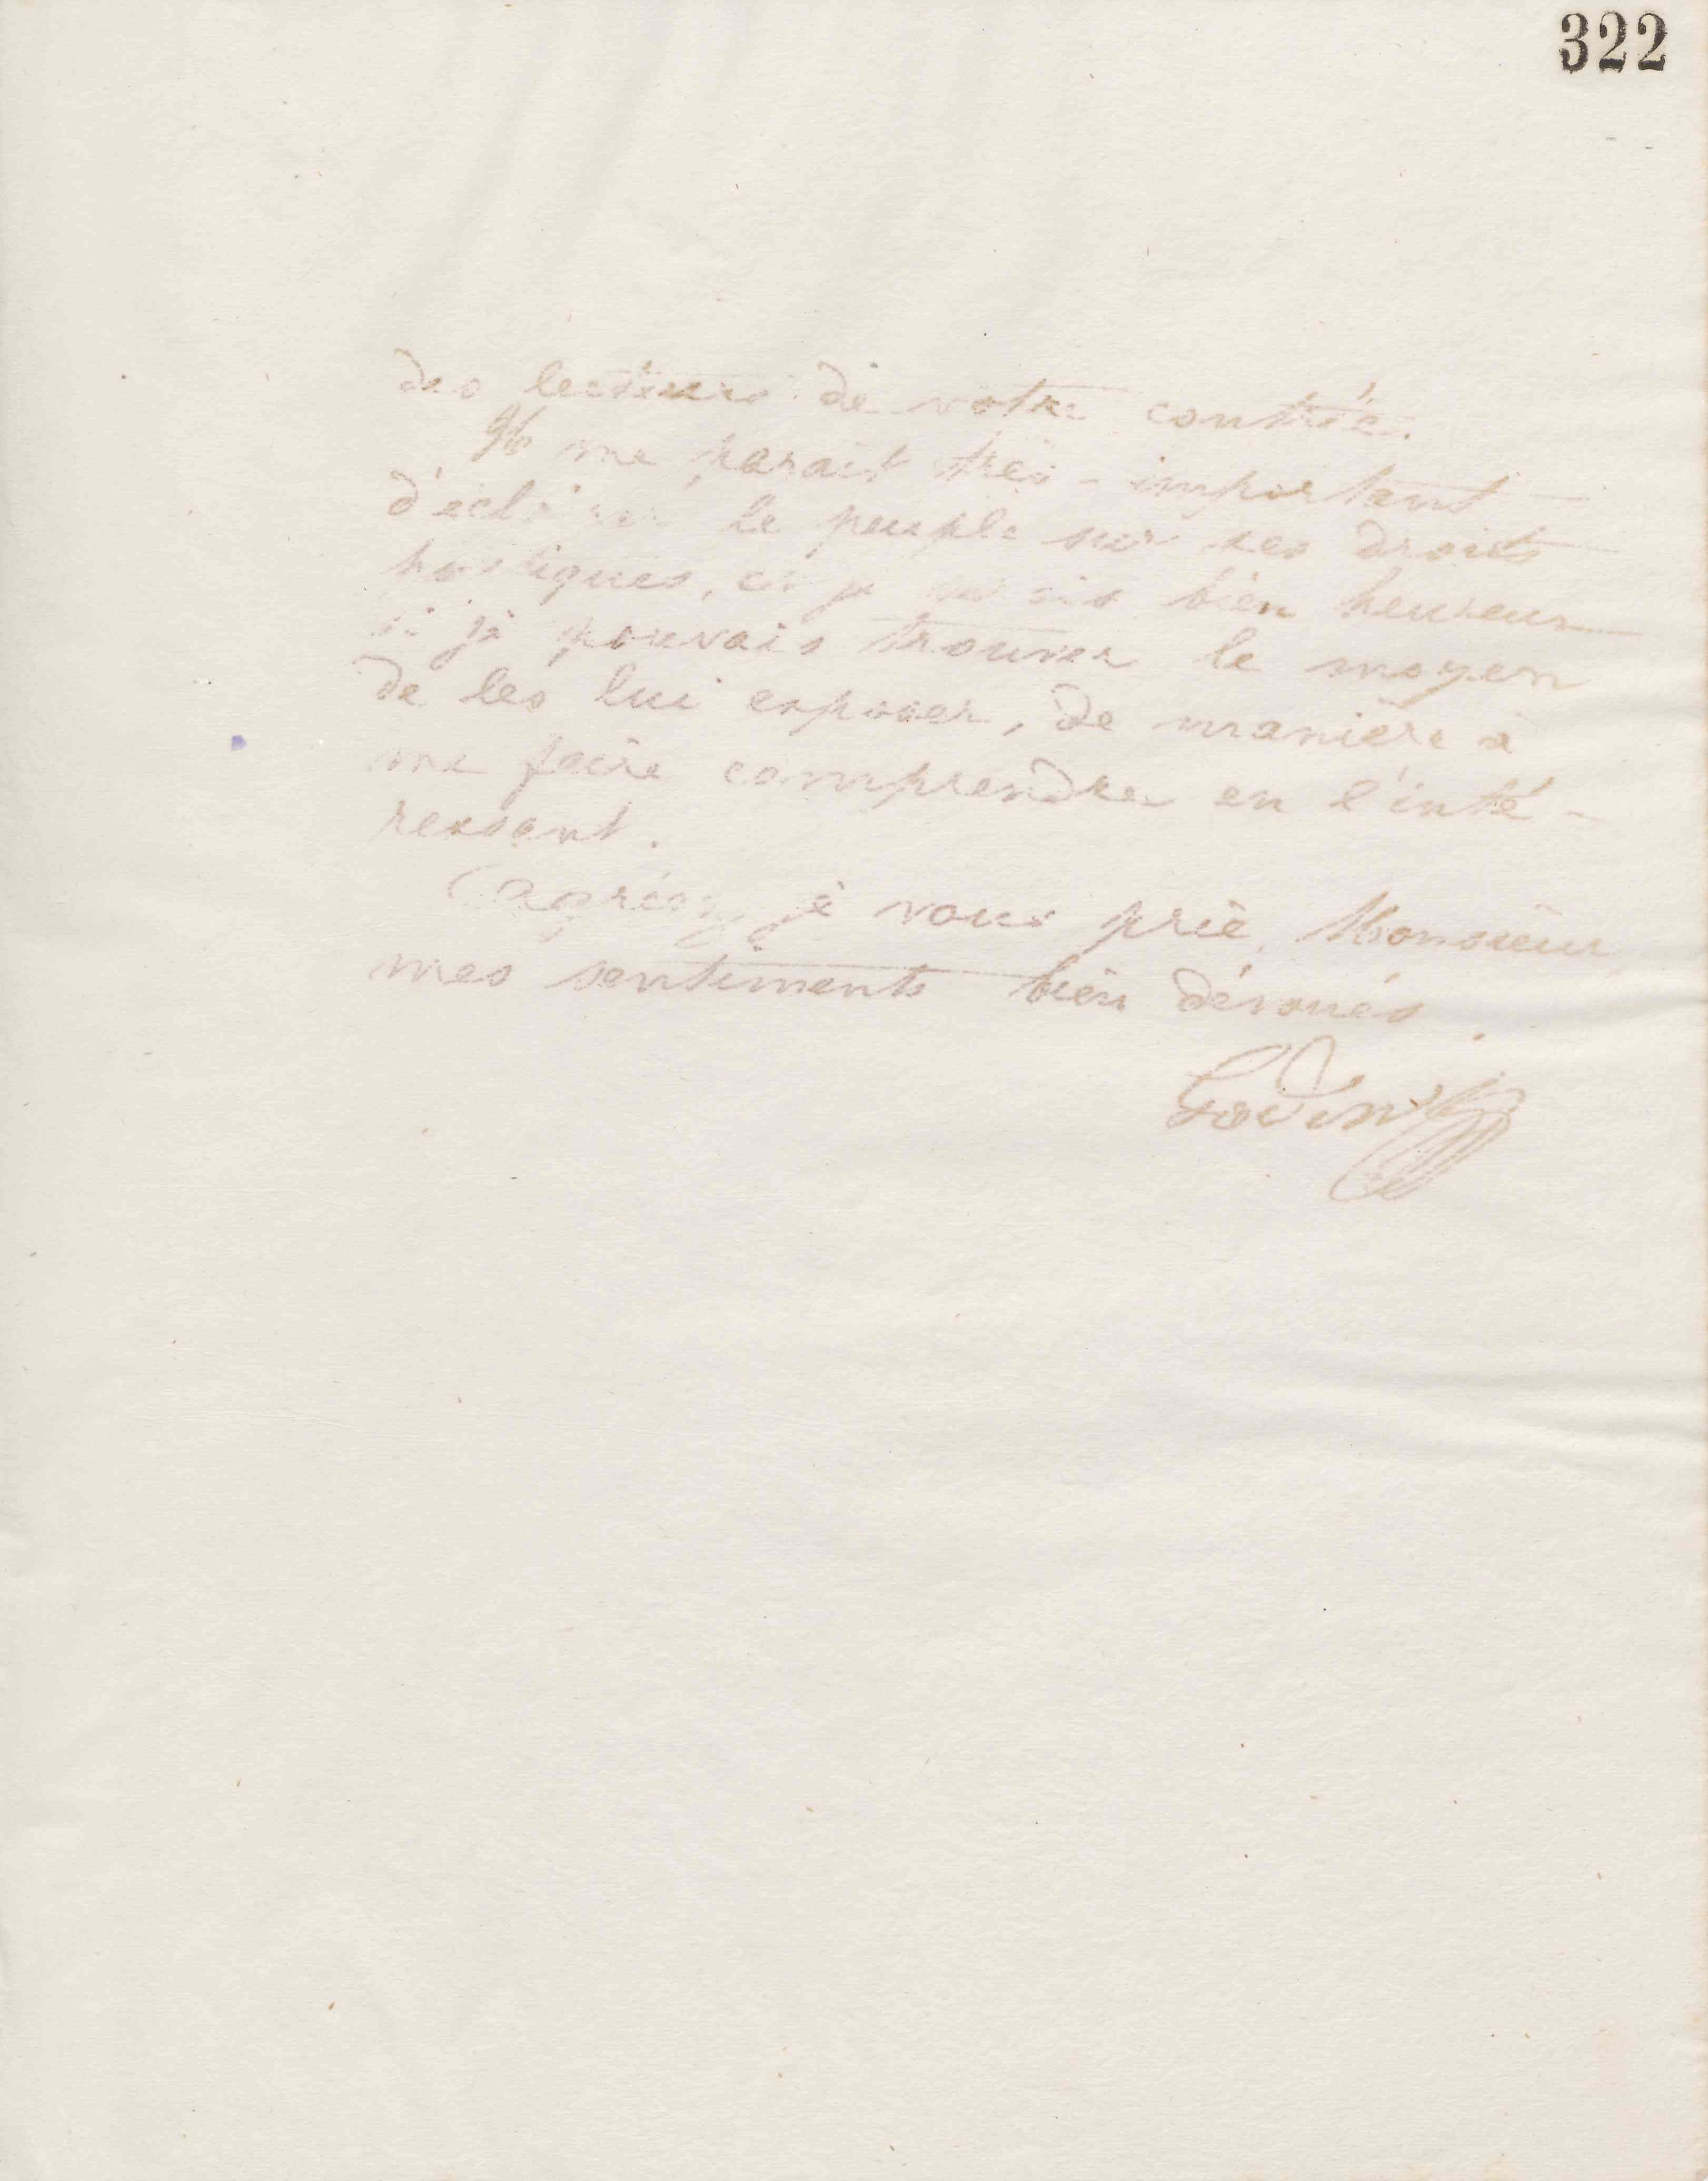 322
des lecteurs de votre contrée.
Il me paraît très-important
d'éclairer le peuple sur ses droits
politiques, et je serais bien heureux
si je pouvais trouver le moyen
de les lui exposer, de manière à
me faire comprendre en l'inté-
ressant.
Agréez, je vous prie, Monsieur
mes sentiments bien dévoués.
Godin